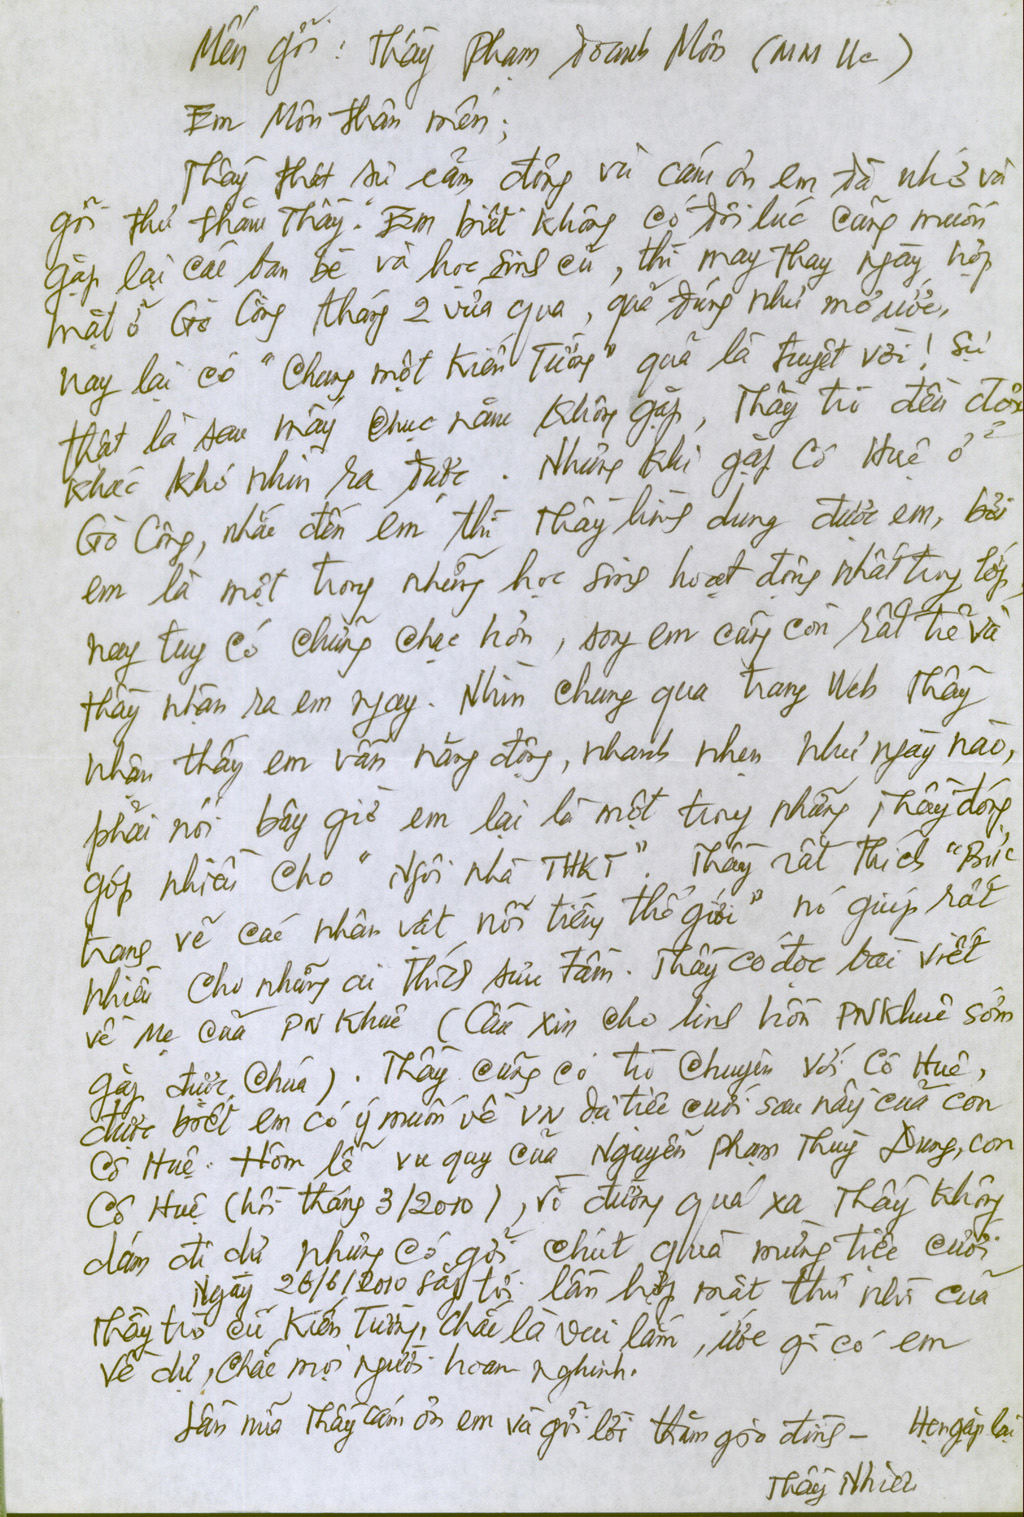 Mến gởi: Thầy Phạm Doanh Môn (MM Uc)
Em Môn thân mến;
Thầy thật sự cảm động và cám ơn em đã nhớ và
gởi thư thăm Thầy. Em biết không có đôi lúc cũng muốn
gặp lại các bạn bè và học sinh cũ, thì may thay ngày họp
mặt ở Gò Công tháng 2 vừa qua, quả đúng như mơ ước,
nay lại có "Chung một Kiến Tường" quả là tuyệt vời! Sự
thật là sau mấy chục năm không gặp, Thầy trò đều đổi
khác khó nhìn ra được. Nhưng khi gặp Cô Huệ ở
Gò Công, nhắc đến em thì Thầy hình dung được em, bởi
em là một trong những học sinh hoạt động nhất trong lớp,
nay tuy có chững chạc hơn, song em cũng còn rất trẻ và
thầy nhận ra em ngay. Nhìn chung qua trang Web Thầy
nhận thấy em vẫn năng động, nhanh nhẹn như ngày nào,
phải nói bây giờ em lại là một trong những Thầy đóng
góp nhiều cho "Ngôi nhà THKT". Thầy rất thích "Bức
trang về các nhân vật nổi tiếng thế giới" nó giúp rất
nhiều cho những ai thích sưu tầm. Thầy có đọc bài viết
về Mẹ của PN Khuê (Cầu xin cho linh hồn PNKhuê sớm
gặp được Chúa). Thầy cũng có trò chuyện với Cô Huê,
được biết em có ý muốn về VN dự tiệc cưới sau này của con
Cô Huệ. Hôm lễ vu quy của Nguyễn Phạm Thuỳ Dung, con
Cô Huệ (hồi tháng 3/2010), vì đường quá xa Thầy không
dám đi dự nhưng có gởi chút quà mừng tiệc cưới.
Ngày 26/6/2010 sắp tới lần họp mặt thứ nhì của
Thầy trò cũ Kiến Tường, chắc là vui lắm, ước gì có em
về dự, chắc mọi người hoan nghinh.
Lần nữa Thầy cám ơn em và gởi lời thăm gia đình - Hẹn gặp lại
Thầy Nhiều